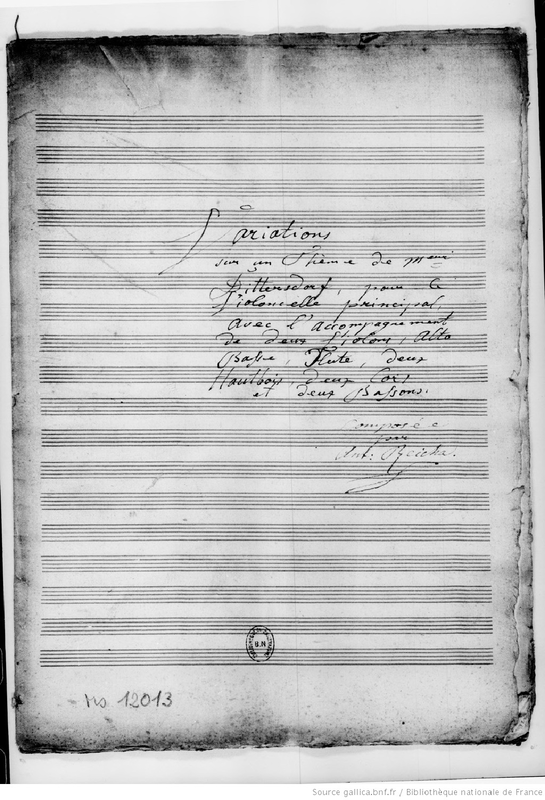 Variations
sur un Thème de Mr
Dittersdorf, pour le
Violoncelle principal,
avec l'accompagnement
de deux Violons, Alto
Basse, Flute, deux
Hautbois, deux Cors
et deux Bassons.
Composée
par
Ant: Reicha.
B.N
Ms 12013
Source gallica.bnf.fr / Bibliothèque nationale de France